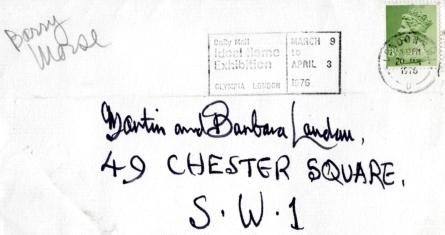 Barry
Morse
Daily Mail
Ideal Home
Exhibition
OLYMPIA LONDON
MARCH 9
to
APRIL 3
1976
1976
Martin and Barbara Landau,
49 CHESTER SQUARE,
S.W.1